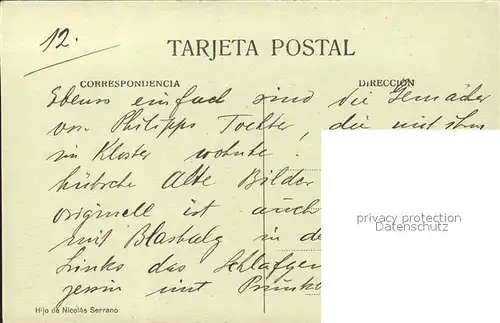 12.
TARJETA POSTAL
CORRESPONDENCIA
DIRECCIÓN
Ebenso einfach sind die Gemächer
von Philipps Tochter, die mit ihm
im Kloster wohnte.
hübsche alte Bilder
originell ist auch
mit Blasbalg in de
Links das Schlafgem
mit Prunk
privacy protection
Datenschutz
Hijo de Nicolás Serrano